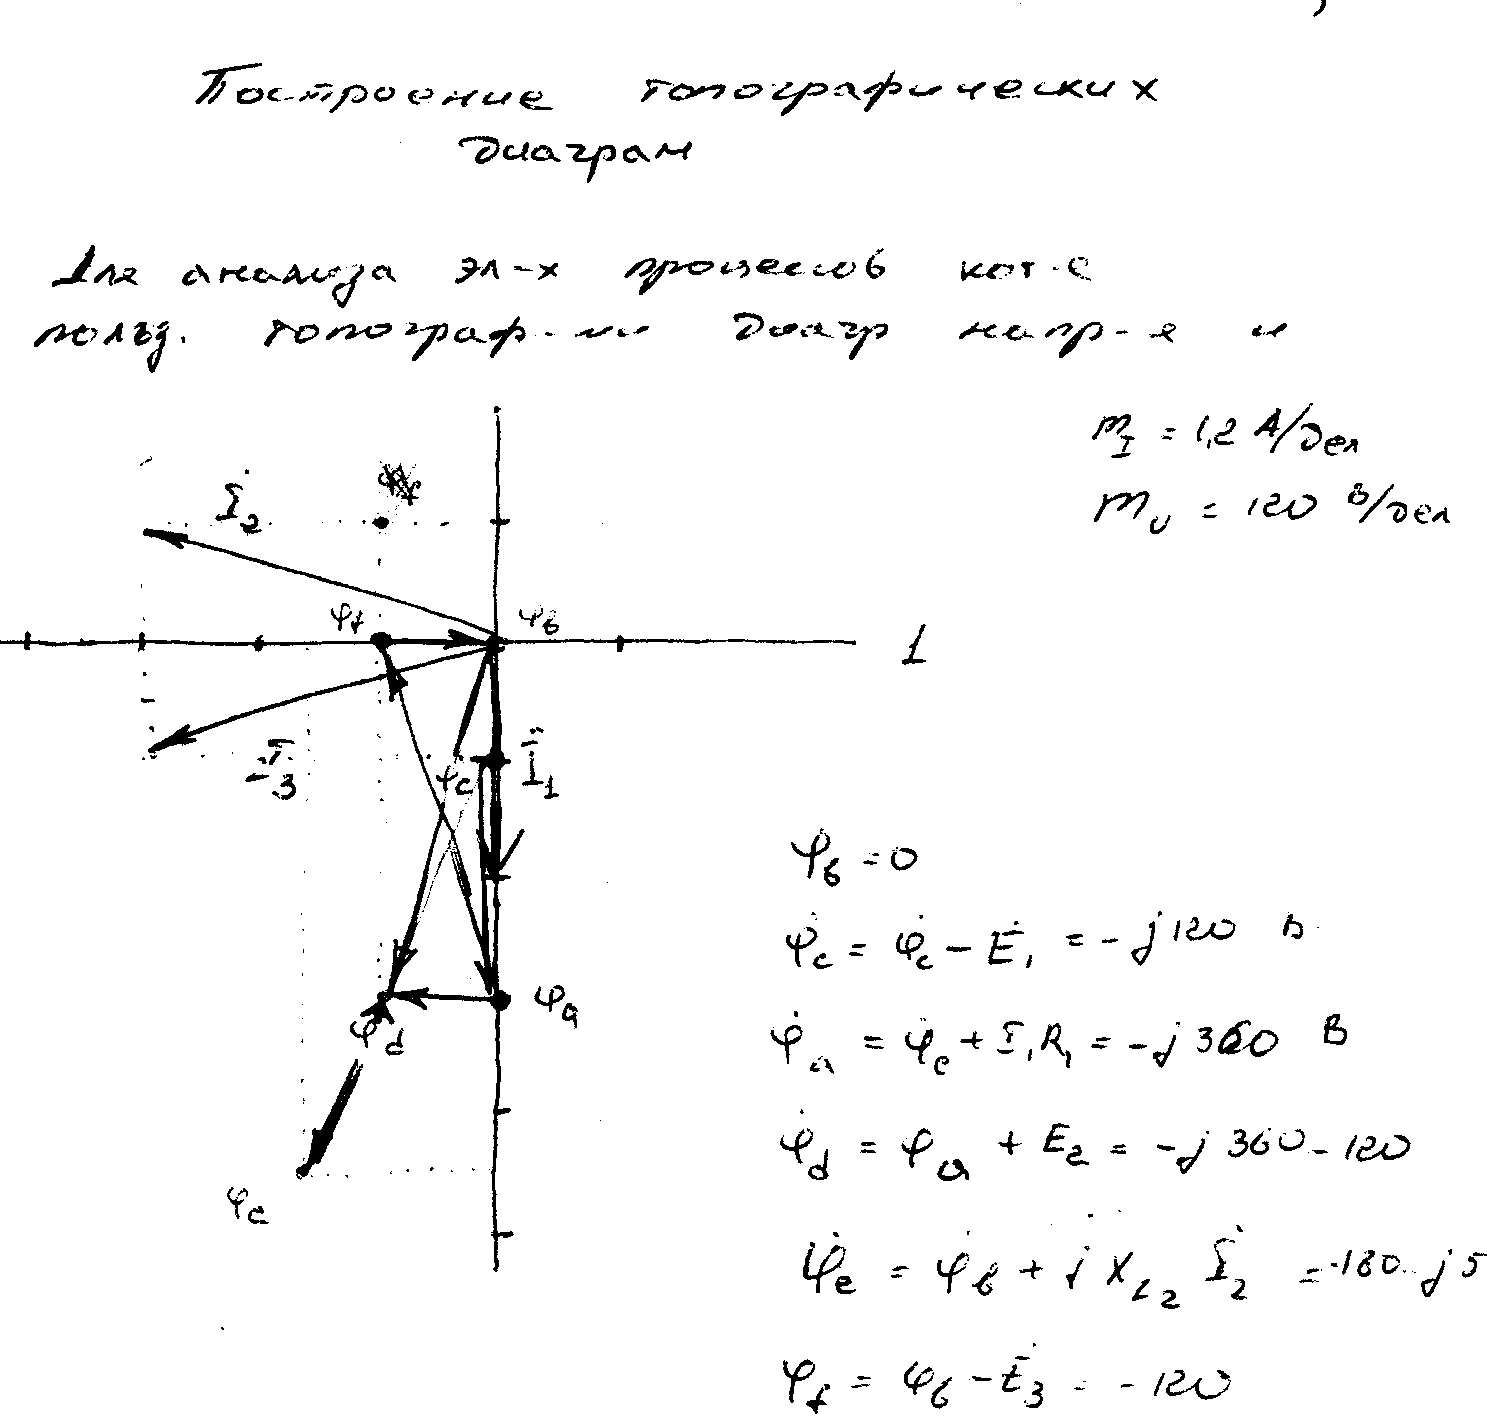 Построение топографических
диаграм
Для анализа эл-х процессов кот-е
польз. топограф-ми диагр напр-е и
m_I = 1,2 А/дел
m_U = 120 В/дел
İ₂
φ_f
φ_в
1
İ₃
φ_c
İ₁
φ_a
φ_d
φ_e
φ_в = 0
φ̇_c = φ̇_c - Ė₁ = -j120 В
φ̇_a = φ̇_c + I₁R₁ = -j360 В
φ̇_d = φ_a + E₂ = -j360 - 120
φ̇_e = φ̇_в + j X_L₂ İ₂ = -180 - j5
φ_f = φ_в - Ė₃ = -120